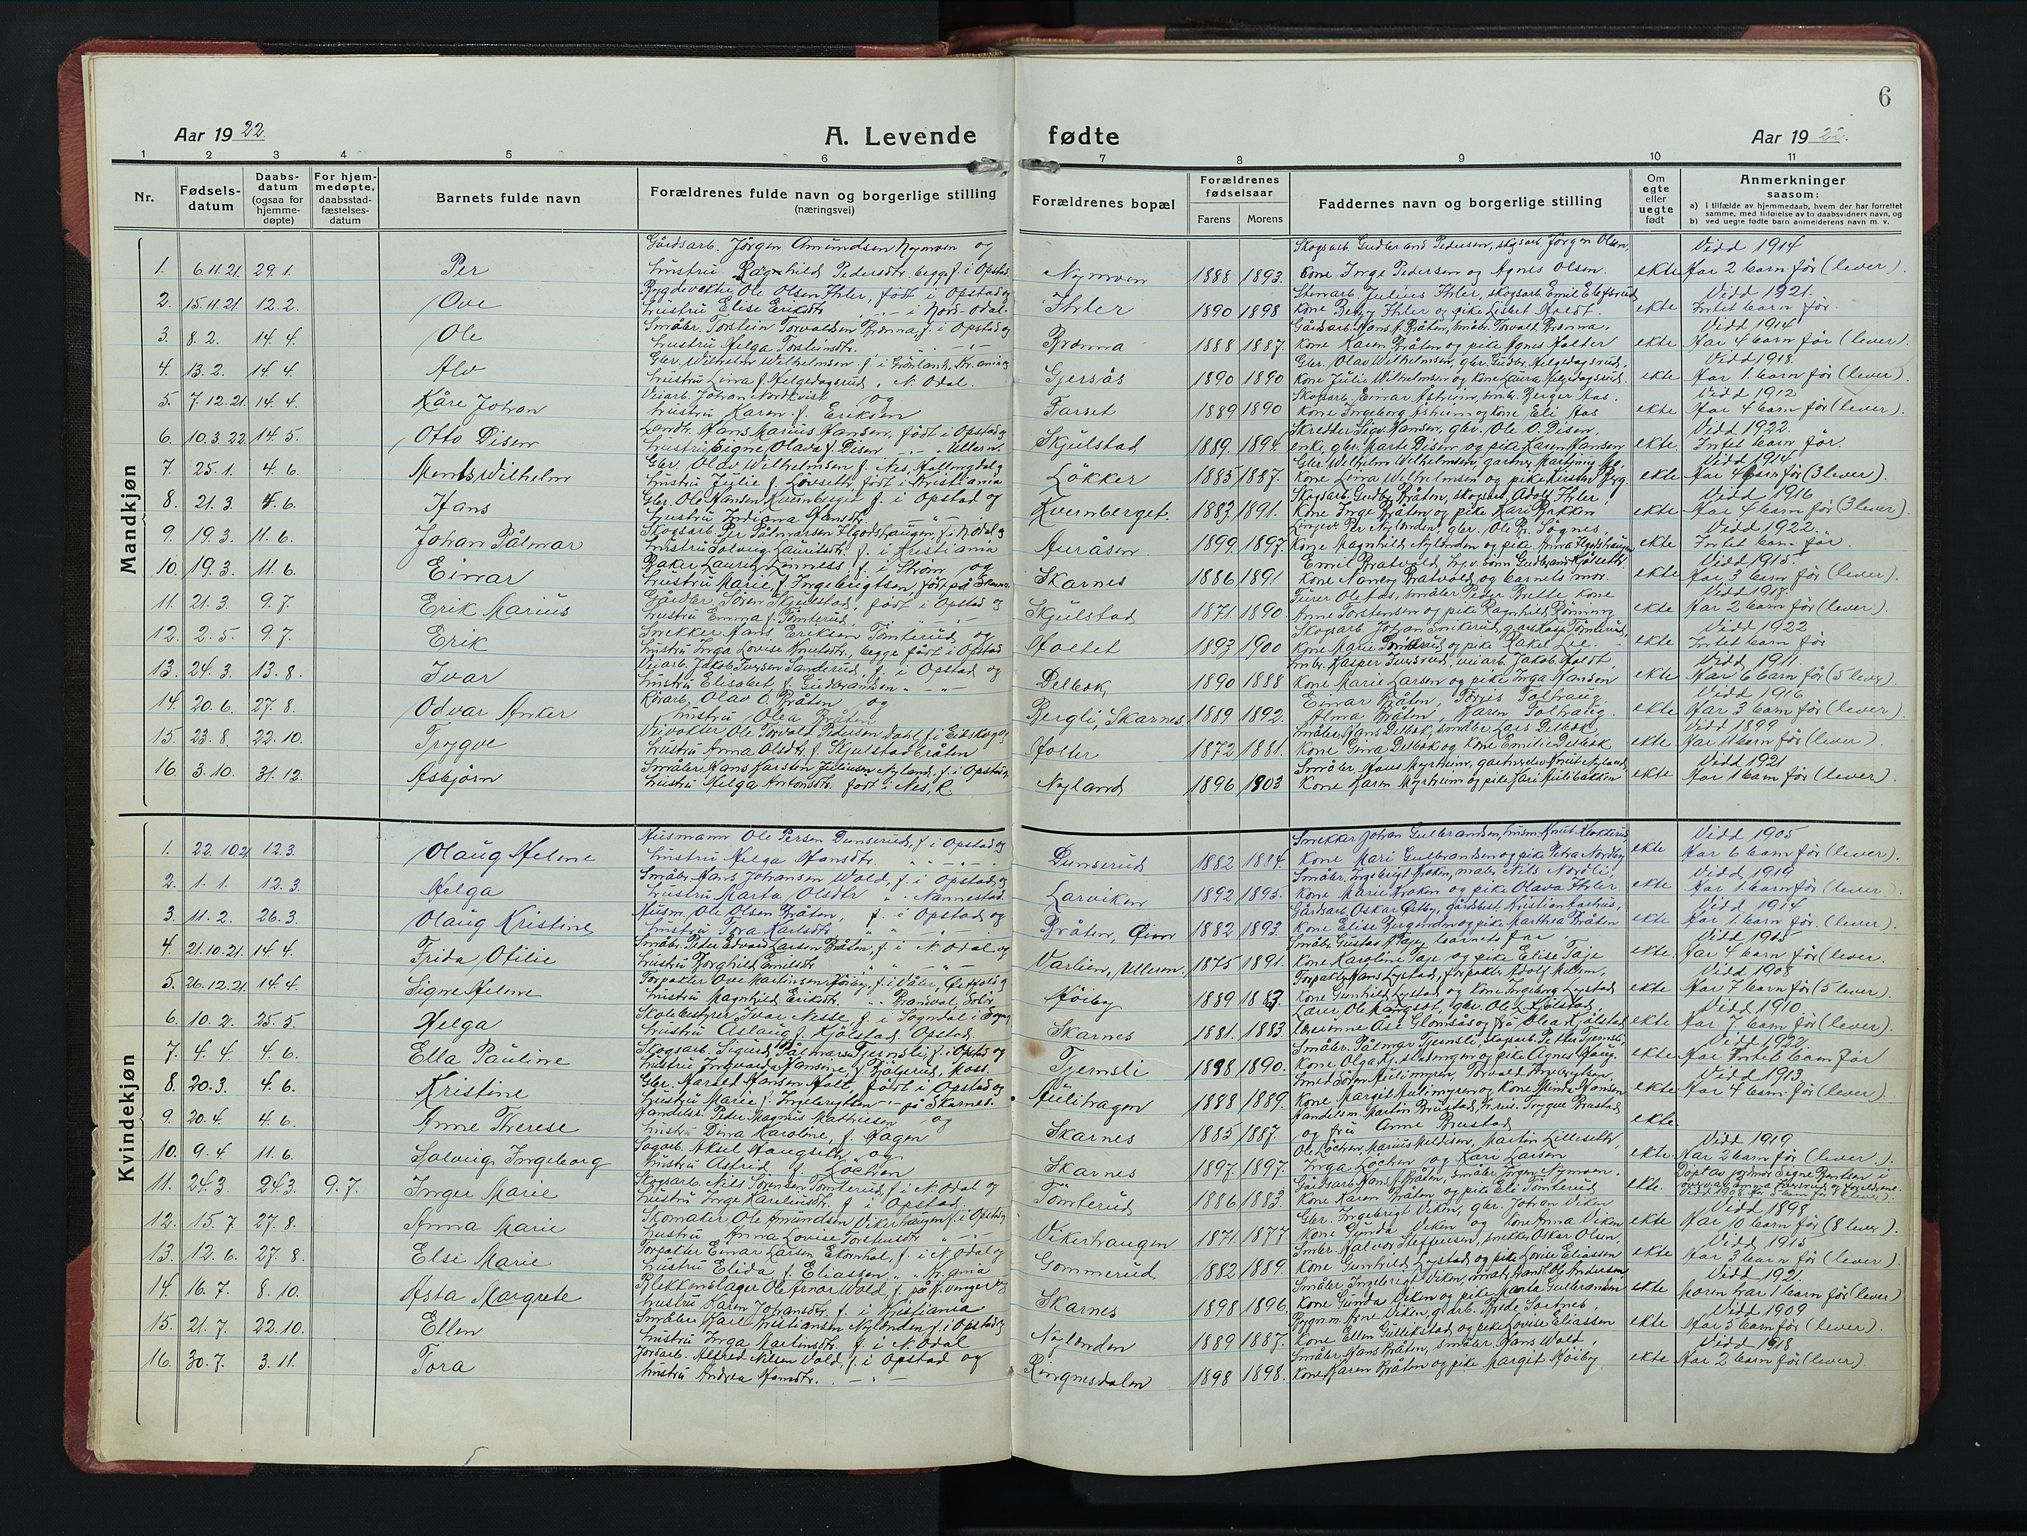 6
Aar 1922.
A. Levende fødte
Aar 1922.
1 2 3 4 5 6 7 8 9 10 11
Nr.
Fødsels-
datum
Daabs-
datum
(ogsaa for
hjemme-
døpte)
For hjem-
medøpte,
daabsstad-
fæstelses-
datum
Barnets fulde navn
Forældrenes fulde navn og borgerlige stilling
(næringsvei)
Forældrenes bopæl
Forældrenes
fødselsaar
Farens Morens
Faddernes navn og borgerlige stilling
Om
egte
eller
uegte
født
Anmerkninger
saasom:
a) i tilfælde av hjemmedaab, hvem der har forrettet
samme, med tilføielse av to daabsvidners navn, og
b) ved uegte fødte barn anmelderens navn m. v.
Mandkjøn
1. 6.11.21. 29.1. Per
Gårdsarb. Jörgen Amundsen Nymoen og
hustru Ragnhild Pedersdtr. begge f. i Opstad
Nymoen 1888 1893.
Skogsarb. Gudbrand Pedersen, skogsarb. Jörgen Olsen,
kone Inge Pedersen og Agnes Olsen.
ekte
Vidd 1914
Har 2 barn før (lever).
2. 15.11.21. 12.2. Ove
Ole Olsen Ihler, født i Opstad og
hustru Elise Eriksdtr. i Nord-Odal
Ihler 1890 1898
Julius Ihler, skogsarb. Emil
kone Ihler og pike Lisbet Holdt.
ekte
Vidd 1921.
Intet barn før.
3. 8.2. 14.4. Ole
Småbr. Torstein Torvaldsen Bramma f. i Opstad og
hustru Helga Torsteinsdtr.
1888 1887.
Gårdsarb. Hans Bråten, småbr. Torvald
kone Karen Bråten og pike Agnes Holter
ekte
Vidd 1914
Har 4 barn før (lever).
4. 13.2. 14.4. Alv
Gbr. Wilhelm Wilhelmsen f. i Grønland, Kr.ania og
hustru Linna f. Helgedagsrud, N. Odal.
Gjersås 1890 1890
Gbr. Olav Wilhelmsen, gbr. Gudbr. Helgedagsrud,
kone Julie Wilhelmsen og kone Laura Helgedagsrud.
ekte
Vidd 1918.
Har 1 barn før (lever).
5. 7.12.21. 14.4. Kåre Johan
Veiarb. Johan Nordkvist og
hustru Karen f. Eriksen
Farset 1889 1890
Skogsarb. Einar Åsheim, småbr. Berger Aas.
kone Ingeborg Åsheim og kone Eli Aas
ekte
Vidd 1912
Har 4 barn før (lever).
6. 10.3.22. 14.5. Otto Disen
Landh. Hans Marius Hansen, født i Opstad og
hustru Signe Olava f. Disen Ullern.
Skulstad 1889. 1894.
Skredder Sigv. Hansen, gbr. Ole O. Disen,
enke, gbr. Marte Disen og pike Karen Hansen
ekte.
Vidd 1922.
Intet barn før.
7. 25.1. 4.6. Wilhelm
Gbr. Olav Wilhelmsen f. Nes, Hallingdal og
hustru Julie f. Lövseth, født i Kristiania
Løkker 1885 1887.
Gbr. Wilhelm Wilhelmsen, gartner
kone Linna Wilhelmsen og pike Kirsten
ekte
Vidd 1914
Har 4 barn før (3 lever)
8. 21.3. 4.6. Hans
Gbr. Ole Hansen Kvernberget f. i Opstad og
hustru Indiana Hansdtr.
Kvernberget. 1883. 1891.
Skogsarb. Gudbr. Bråten, skogsarb. Adolf Ihler,
kone Inge Bråten og pike Kari Bakken
ekte.
Vidd 1916
Har 4 barn før (3 lever).
9. 19.3. 11.6. Johan Pålmar
Skogsarb. Per Pålmarsen f. i N. Odal og
hustru Solveig Lauritsdtr. f. i Kristiania
Auråsen 1899. 1897.
Per Nylænden, gbr. Ole
kone Magnhild Nylænden og pike Anna
ekte
Vidd 1922.
Intet barn før.
10. 19.3. 11.6. Einar
Baker Laurits Linness f. i Thom. og
hustru Marie f. Ingebrigtsen, født på Skarnes.
Skarnes 1886 1891
Emil Bratvold,
kone Nancy Bratvold og barnets mor.
ekte.
Vidd 1915.
Har 3 barn før (lever).
11. 21.3. 9.7. Erik Marius
Gårdbr. Søren Skulstad, født i Opstad og
hustru Emma f. Tømterud,
Skulstad 1871. 1890.
Anne Torstensen og pike Ragnhild Rönning
ekte
Har 2 barn før (lever).
12. 2.5. 9.7. Erik
Snekker Hans Eriksen Tömterud og
hustru Inga Lovise Knutsdtr., begge født i Opstad
Holtet 1893 1900
Skogsarb. Johan
kone Marie Tömterud og pike Rakel Lie
ekte
Vidd 1922
Intet barn før
13. 24.3. 13.8. Ivar
Veiarb. Jakob Iversen Sanderud, f. i Opstad og
hustru Elisabet f. Gudbrandsen
Delbæk, 1890 1888
Småbr. Kasper Iversrud, veiarb. Jakob Holdt,
kone Marie Larsen og pike Inga Hansen
ekte.
Vidd 1911.
Har 6 barn før (5 lever)
14. 20.6. 27.8. Odvar Anker
Olav O. Bråten og
hustru Olea Bråten
Bergli, Skarnes 1889 1892.
Einar Bråten,
Alma Bråten, Karen
ekte
Vidd 1916
Har 3 barn før (lever).
15. 23.8. 22.10. Trygve
Veivokter Ole Torvald Pedersen Dahl, f. i Eidskog og
hustru Anna Olsdtr. f. Skulstadbråten
Holter 1872 1881.
Småbr. Hans Delbæk, småbr. Lars Delbæk,
kone Gina Delbæk og kone Emilie Delbæk
ekte
Vidd 1899
Har 11 barn før (lever)
16. 3.10. 31.12. Asbjørn
Småbr. Hans Karsten Juliusen Nyland, f. i Opstad og
hustru Helga Antonsdtr. født i Nes, R.
Nyland 1896 1903
Småbr. Hans Myrheim,
kone Karen Myrheim og pike
ekte
Vidd 1921
Har 1 barn før (lever)
Kvindekjøn
1. 22.10.21 12.3. Olaug Helene
Husmann Ole Persen Dunserud, f. i Opstad og
hustru Helga Hansdtr.
Dunserud 1882 1884.
Snekker Johan Gulbrandsen, husm. Knut Klokkerud
kone Mari Gulbrandsen og pike Petra Nordby
ekte
Vidd 1905
Har 6 barn før (lever).
2. 1.1. 12.3. Helga
Småbr. Hans Johansen Wold, f. i Opstad, og
hustru Marta Olsdtr. Nannestad.
Larviken 1892 1895.
Småbr. Ingebrigt Haken, maler Nils Nordli,
kone Marie Haken og pike Olava Ihler
ekte
Vidd 1919
Har 1 barn før (lever).
3. 11.2. 26.3. Olaug Kristine
Husm. Ole Olsen Bråten, f. i Opstad, og
hustru Tora Karlsdtr.
Bråten, 1882 1893.
Gårdsarb. Oskar Ørtby, gårdbest. Kristian Aarhus,
kone Elise Bergenden og pike Marthea Bråten
ekte.
Vidd 1914
Har 1 barn før (lever).
4. 21.10.21. 14.4. Frida Otilie
Småbr. Peter Edvard Larsen Bråten, f. i N. Odal og
hustru Borghild Emilsdtr.
Varlien, Ullern. 1875 1891.
Småbr. Gustav Taje, barnets far
kone Karoline Taje og pike Elise Taje
ekte
Har 4 barn før (lever.
5. 26.12.21. 14.4. Signe Helene
Forpakter Ove Martinsen Høiby, f. i Våler, Østfold og
hustru Magnhild Eriksdtr. Brandval, Solør
Høiby 1889 1883
Forpakter Hans Lystad, forpakter Adolf Holum,
kone Gunhild Lystad og kone Ingeborg Lystad
ekte
Vidd 1908
Har 7 barn før (5 lever)
6. 10.2. 25.5. Helga
Skolebestyrer Ivar Nesse, f. i Sogndal i Sogn og
hustru Aslaug f. Kjölstad, Opstad.
Skarnes 1881. 1883.
Lærer Ole Mangset, gbr. Ole Kjölstad,
lærerinne Åse Glomsås og frk Olea Kjölstad
ekte
Vidd 1910.
Har 7 barn før (lever).
7. 4.4. 4.6. Ella Pauline
Skogsarb. Sigurd Pålmarsen Tjernsli, f. i Opstad og
hustru Ingvarda Hansine f. Moss.
Tjernsli 1898 1890.
Småbr. Pålmar Tjernsli, skogsarb. Petter Tjernsli,
kone Olga og pike Agnes Haug.
ekte
Vidd 1922.
Har Intet barn før
8. 20.3. 4.6. Kristine
Gbr. Harald Hansen Holt, født i Opstad og
hustru Marie f. Ingebrigtsen på Skarnes.
Aulihagen 1888 1889.
Smed Søren Aulimyren, Torvald Ingebrigtsen
kone Margit Aulimyren og kone Minda Hansen
ekte
Vidd 1913
Har 4 barn før (lever).
9. 20.4. 4.6. Anne Therese
Handelsr. Peter Magnus Mathiesen og
hustru Dina Karoline, f. Hagen
Skarnes 1885 1887.
Handelsm. Martin Brustad, Trygve Brustad
og frú Anne Brustad
ekte.
10. 9.4 11.6. Solveig Ingeborg
Sagarb. Aksel Haugseth og
hustru Astrid f. Løchen
Skarnes 1897. 1897.
Ole Løchen, Marius Meldisen, Martin Lilleseth,
Inga Løchen og Kari Larsen
ekte.
Vidd 1919.
Har 2 barn før (lever.).
11. 24.3. 24.3. 9.7. Inger Marie
Skogsarb. Nils Sørensen Tømterud, f. i N. Odal og
hustru Inge Kareliusdtr. Opstad.
Tömterud 1886 1883.
Gårdsarb. Hans Bråten, småbr. Jörgen Nymoen.
kone Karen Bråten og pike Eli Tömterud
ekte.
Døpt av jordmor Signe Berntsen i
overvær av Emma og forældrene.
Vidd 1908. Har 5 barn før (lever).
12. 15.7 27.8. Anna Marie
Skomaker Ole Amundsen Vikerhaugen f. i Opstad og
hustru Anna Lovise Torstensdtr.
Vikerhaugen 1871. 1877.
Gbr. Ingebrigt Viken, gbr. Johan Viken
kone Gunda Viken og kone Anna Viken
ekte
Vidd 1898
Har 10 barn før (8 lever)
13. 12.6. 27.8. Else Marie
Forpakter Einar Larsen Ekornhol, f. i N. Odal og
hustru Elida f. Eliassen, Kr.ania
Gommerud 1882 1889.
Småbr. Halvor Steffensen, snekker Oskar Olsen,
kone Gunhild Lystad og pike Lovise Eliassen
ekte
Vidd 1915
Har 3 barn før (lever).
14. 16.7. 8.10. Asta Margrete
Blikkenslager Ole Arnor Wold, f. på N. unger og
hustru Karen Johansdtr. f. i Kristiania
Skarnes 1898 1896.
Småbr. Ingebrigt Viken, Andersen
kone Gunda Viken og pike Marta Gulbrandsen
ekte
Vidd 1921.
moren har 1 barn før (lever)
15. 21.7. 22.10. Ellen
Småbr. Karl Kristiansen Nylænden f. i Opstad og
hustru Inga Martinsdtr. f. i N. Odal
Nylænden 1889 1887.
Bygn.m. Arne Viken, gårdb. Brede Sætnes,
kone Ellen Gullikstad og pike Lovise Eliassen
ekte
Vidd 1909
Har 5 barn før (lever)
16. 30.7. 3.11. Tora
Jordarb. Alfred Nilsen Vold, f. i Opstad og
hustru Andrea Hansdtr.
Ringnesdalen 1898 1898.
Småbr. Hans Bråten, småbr. Hans Wold,
kone Karen Bråten og pike Margit Høiby,
ekte
Vidd 1918
Har 2 barn før (lever).